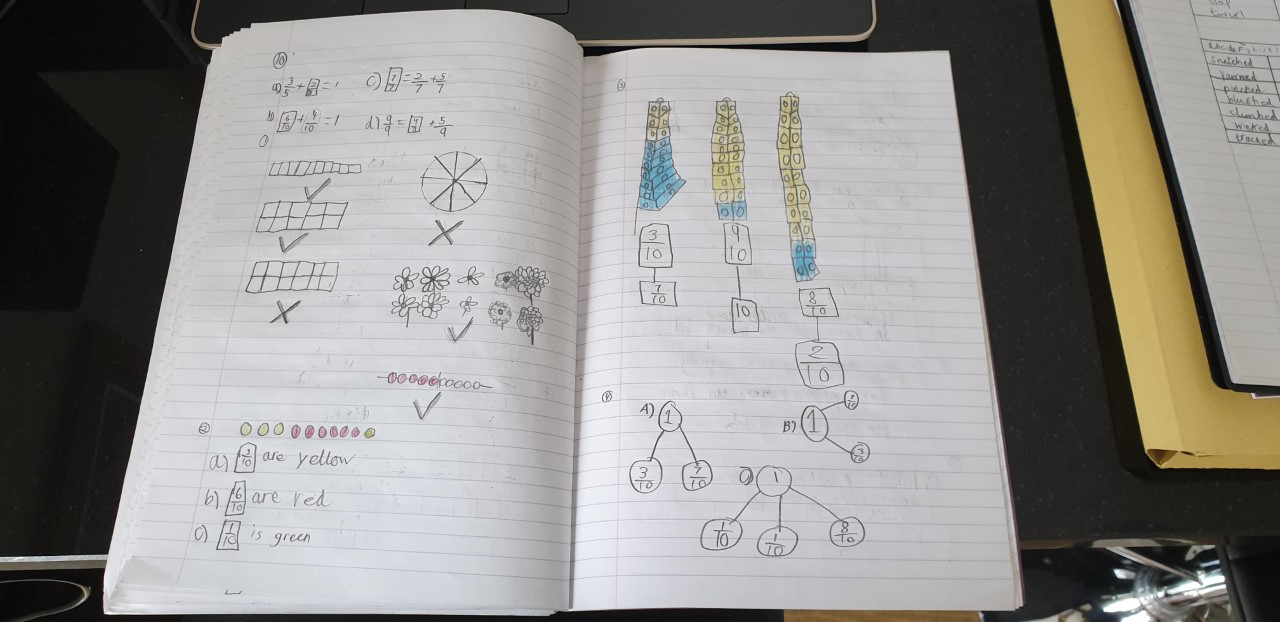 10
a) 3/5 + 2/5 = 1
c) 7/7 = 2/7 + 5/7
b) 6/10 + 4/10 = 1
d) 9/9 = 4/9 + 5/9
1
2
a) 3/10 are yellow
b) 6/10 are red
c) 1/10 is green
3
3/10
9/10
7/10
10
8/10
2/10
A) 1
3/10
7/10
B) 1
C) 1
1/10
1/10
8/10
snatched
yawned
pinched
blushed
climbed
winked
traced